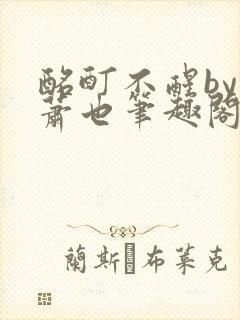 酩酊不醒by
萧也筆趣閣
蘭斯·布萊克